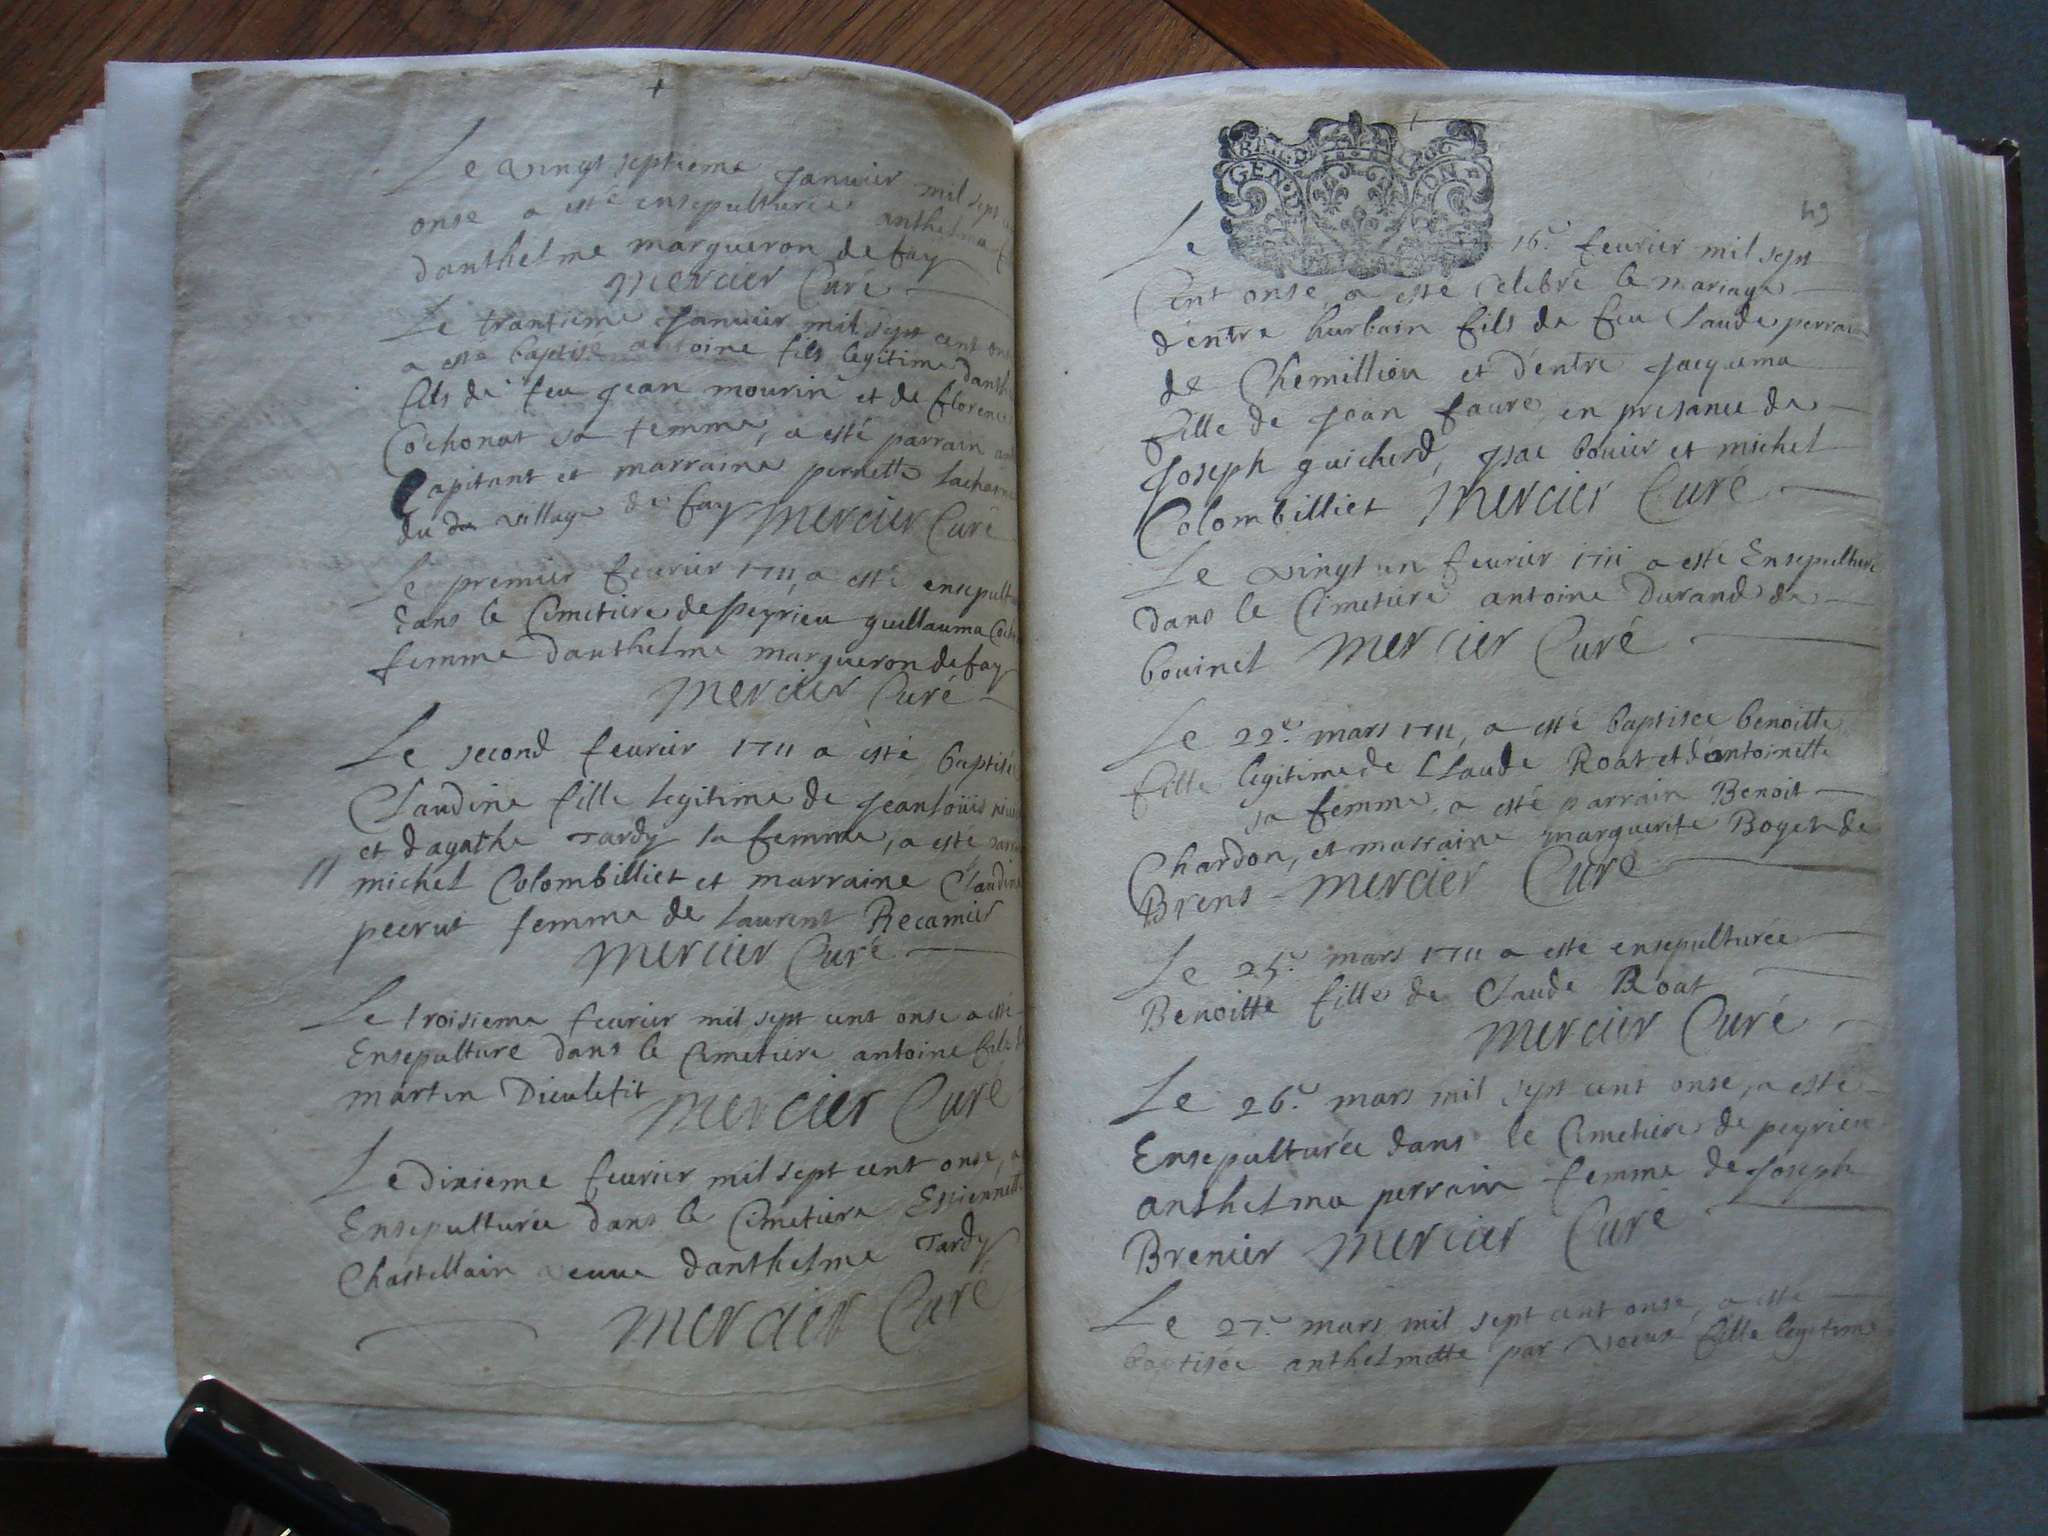 Le vingt septieme Janvier mil sept
onse a esté ensepulturée anthelma
danthelme margueron de fay
Mercier Curé
Le trantieme Janvier mil sept cent
a esté baptisé antoine fils legitime
fils de feu Jean mourin et de florence
Cochonat sa femme, a esté parrain
Capitant et marraine pernette
du village de fay Mercier Curé
Le premier feurier 1711 a esté
dans le Cimetiere de peyrieu guillauma
femme danthelme margueron de fay
Mercier Curé
Le second feurier 1711 a esté baptisé
Claudine fille legitime de Jean loüis
et dagathe Tardy sa femme, a esté
michel Colombilliet et marraine
peerut femme de laurent Recamier
Mercier Curé
Le troisieme feurier mil sept cent onse a esté
Ensepulture dans le Cimetiere antoine fils
martin Dieulefit Mercier Curé
Le dixieme feurier mil sept cent onse, a
Ensepulturée dans le Cimetiere Estiennette
Chastellain veuve danthelme Tardy
Mercier Curé
GEN
49
Le 16e. feurier mil sept
Cent onse, a esté Celebré le mariage
d'entre hurbain fils de feu Claude perrain
de Chemillieu et d'entre Jacquema
fille de Jean faure, en presance de
Joseph guicherd, Isac bouier et michel
Colombilliet Mercier Curé
Le vingt un feurier 1711 a esté Ensepulturé
dans le Cimetiere antoine Durand de
bouinel Mercier Curé
Le 22e. mars 1711, a esté baptisee benoitte
fille legitime de Claude Roat et d'antoinette
sa femme, a esté parrain Benoit
Chardon, et marraine marguerite Boget de
Brens - Mercier Curé
Le 25e. mars 1711 a esté ensepulturée
Benoitte fille de Claude Roat
Mercier Curé
Le 26e. mars mil sept cent onse, a esté
Ensepulturée dans le Cimetiere de peyrieu
anthelma perrain femme de Joseph
Brenier Mercier Curé
Le 27e. mars mil sept cent onse, a esté
baptisée anthelmette par fille legitime